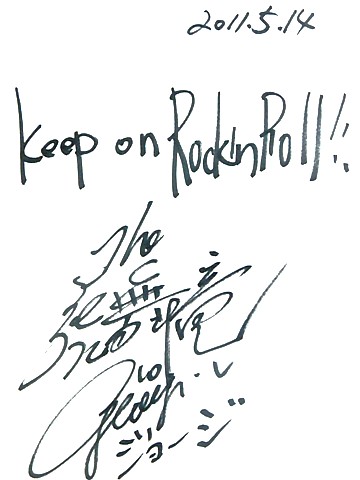 2011.5.14
Keep on Rock'nRoll!!
The
ジョージ